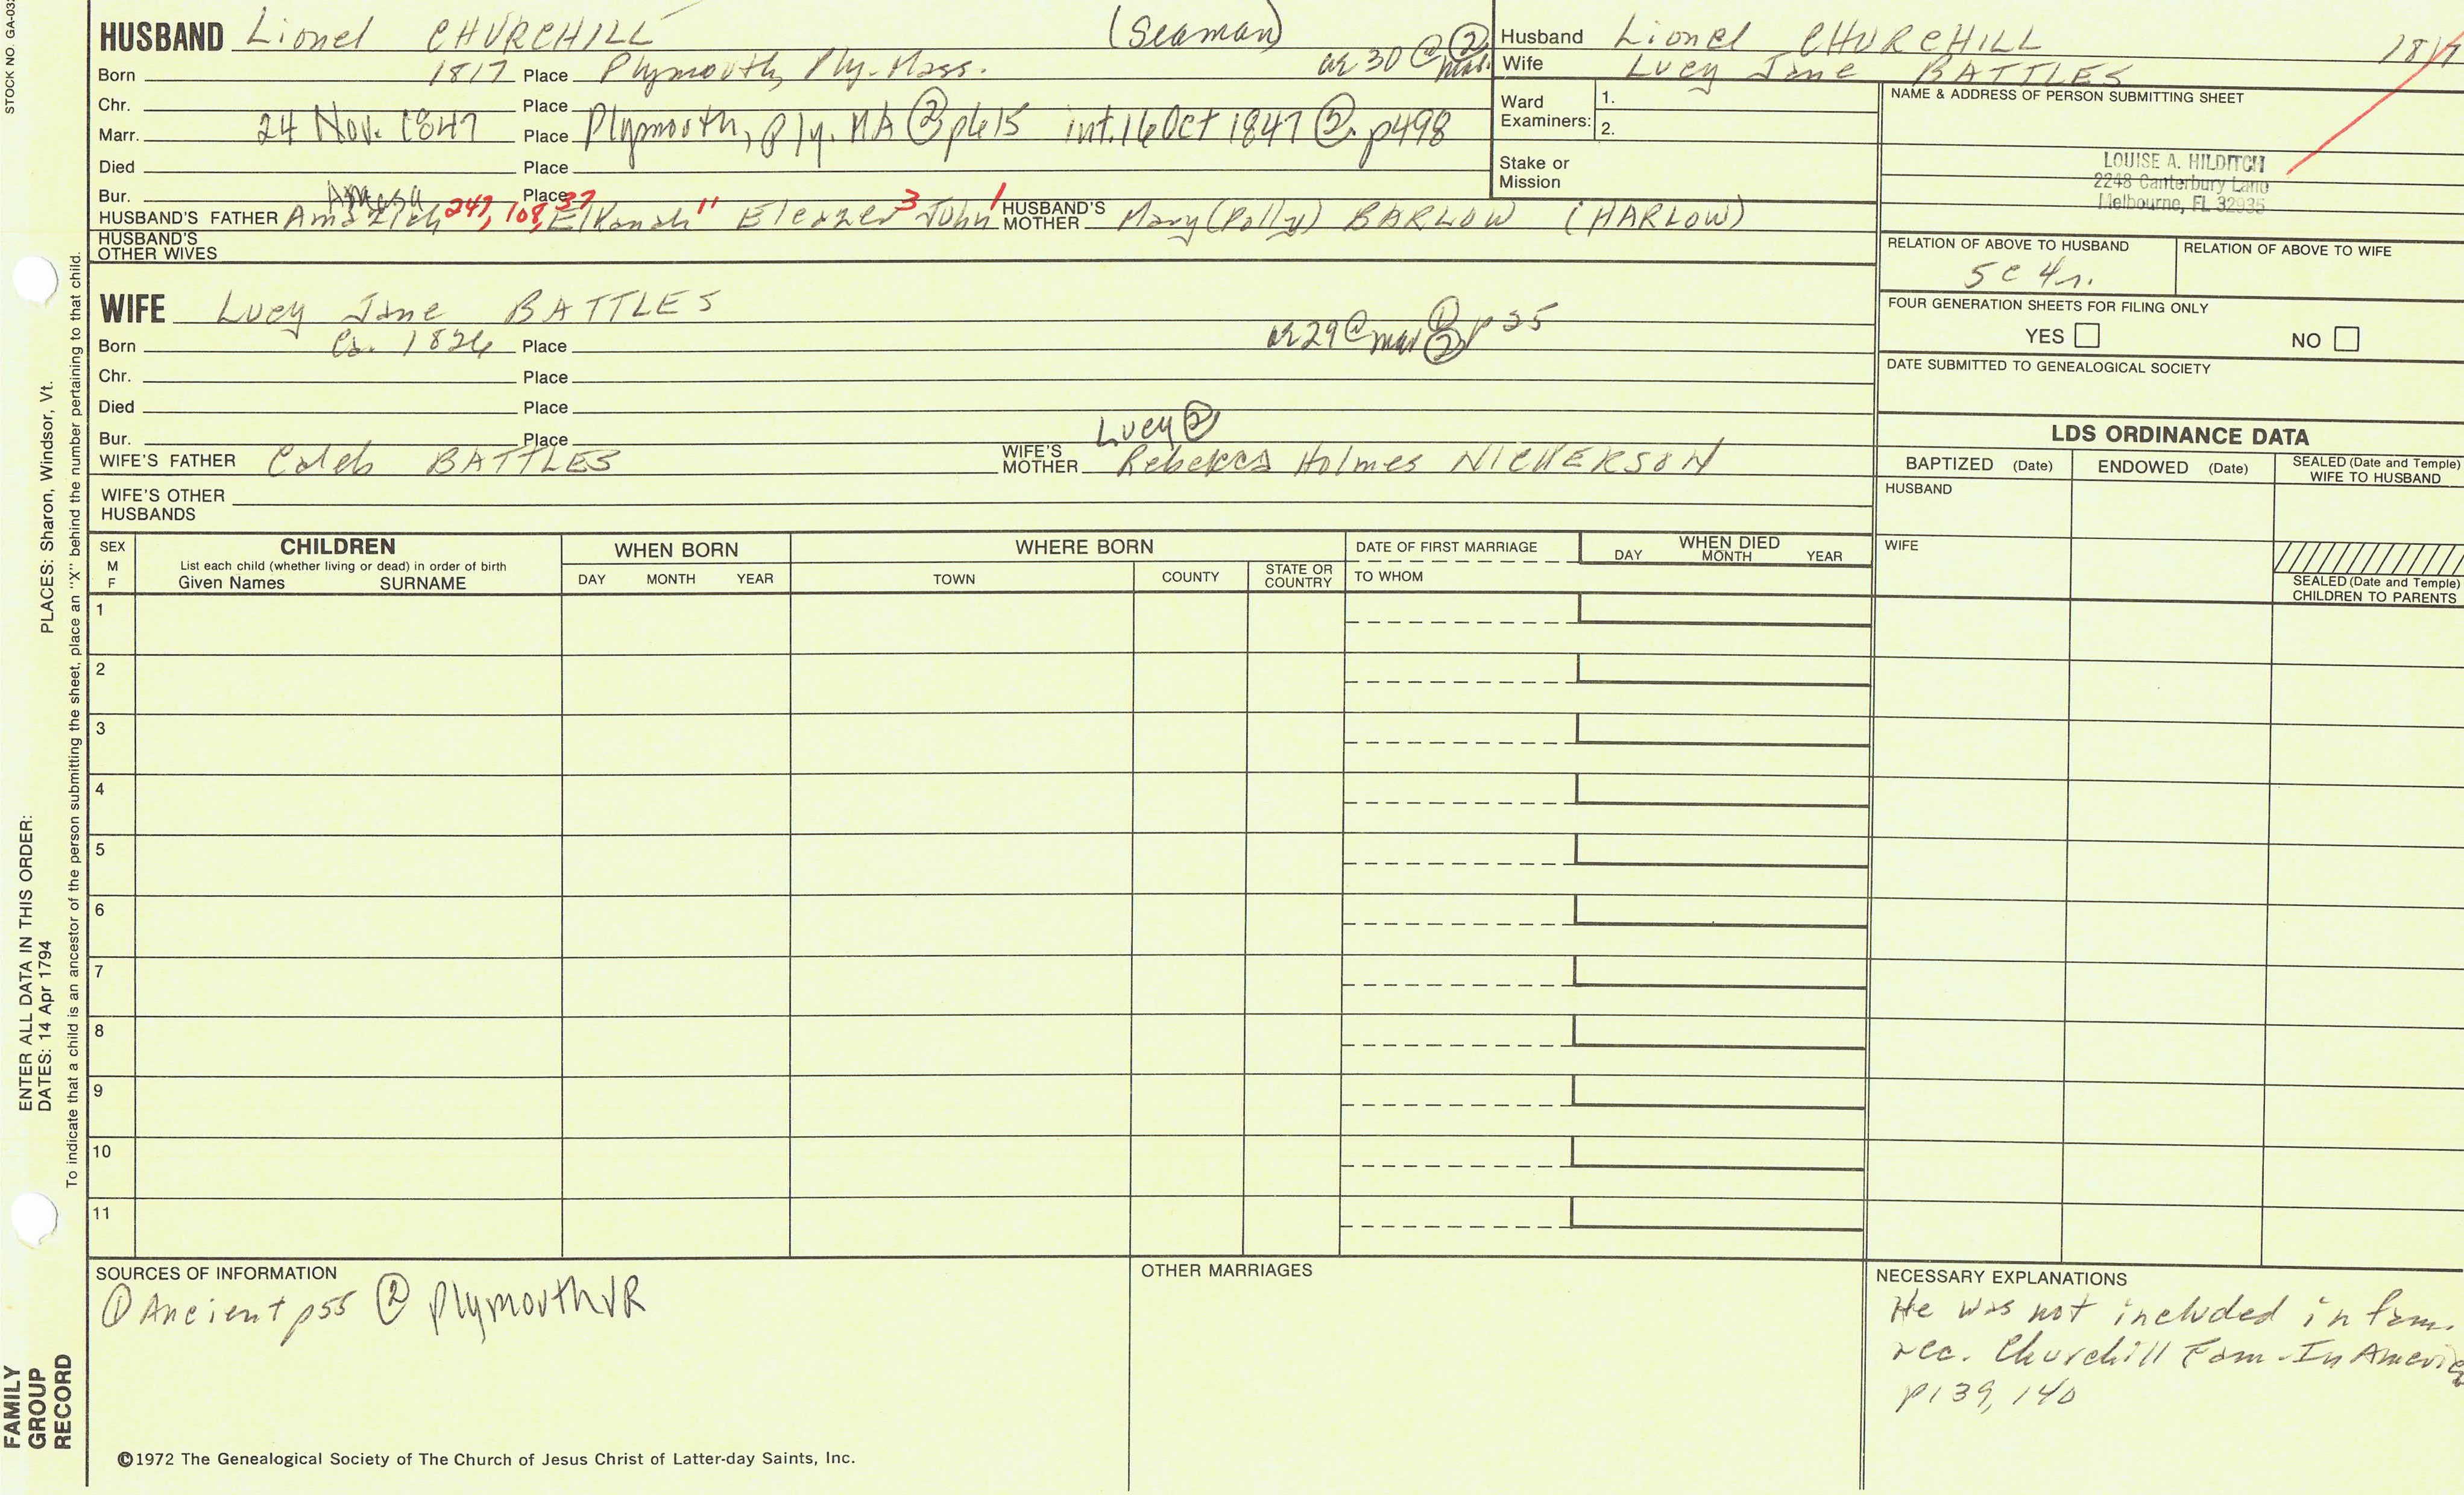 STOCK NO. GA-03
HUSBAND Lionel CHURCHILL (Seaman)
Born 1817 Place Plymouth, Ply. Mass. ae 30 @ ② mar.
Chr. Place
Marr. 24 Nov. 1847 Place Plymouth, Ply. MA ② p615 int. 16 Oct 1847 ②. p498
Died Place
Bur. Place
Amasa
HUSBAND'S FATHER Amaziah 247, 108, Elkanah 37 Eleazer 11 3 John 1 HUSBAND'S MOTHER Mary (Polly) BARLOW (HARLOW)
HUSBAND'S OTHER WIVES
WIFE Lucy Jane BATTLES
Born Ca. 1826 Place ae 29 @ mar ① ② p 25
Chr. Place
Died Place
Bur. Place
Lucy ②
WIFE'S FATHER Caleb BATTLES WIFE'S MOTHER Rebecca Holmes NICKERSON
WIFE'S OTHER HUSBANDS
Husband Lionel CHURCHILL 1817
Wife Lucy Jane BATTLES
Ward Examiners: 1.
2.
Stake or Mission
NAME & ADDRESS OF PERSON SUBMITTING SHEET
LOUISE A. HILDITCH
2248 Canterbury Lane
Melbourne, FL 32935
RELATION OF ABOVE TO HUSBAND RELATION OF ABOVE TO WIFE
5 c 4 r.
FOUR GENERATION SHEETS FOR FILING ONLY
YES NO
DATE SUBMITTED TO GENEALOGICAL SOCIETY
LDS ORDINANCE DATA
BAPTIZED (Date) ENDOWED (Date) SEALED (Date and Temple) WIFE TO HUSBAND
HUSBAND
WIFE
SEALED (Date and Temple) CHILDREN TO PARENTS
SEX M F
CHILDREN
List each child (whether living or dead) in order of birth
Given Names SURNAME
WHEN BORN
DAY MONTH YEAR
WHERE BORN
TOWN COUNTY STATE OR COUNTRY
DATE OF FIRST MARRIAGE
TO WHOM
WHEN DIED
DAY MONTH YEAR
1
2
3
4
5
6
7
8
9
10
11
SOURCES OF INFORMATION
① Ancient p55 ② Plymouth VR
OTHER MARRIAGES
NECESSARY EXPLANATIONS
He was not included in fam.
rec. Churchill Fam. In America
p139, 140
©1972 The Genealogical Society of The Church of Jesus Christ of Latter-day Saints, Inc.
ENTER ALL DATA IN THIS ORDER:
DATES: 14 Apr 1794 PLACES: Sharon, Windsor, Vt.
To indicate that a child is an ancestor of the person submitting the sheet, place an "X" behind the number pertaining to that child.
FAMILY
GROUP
RECORD